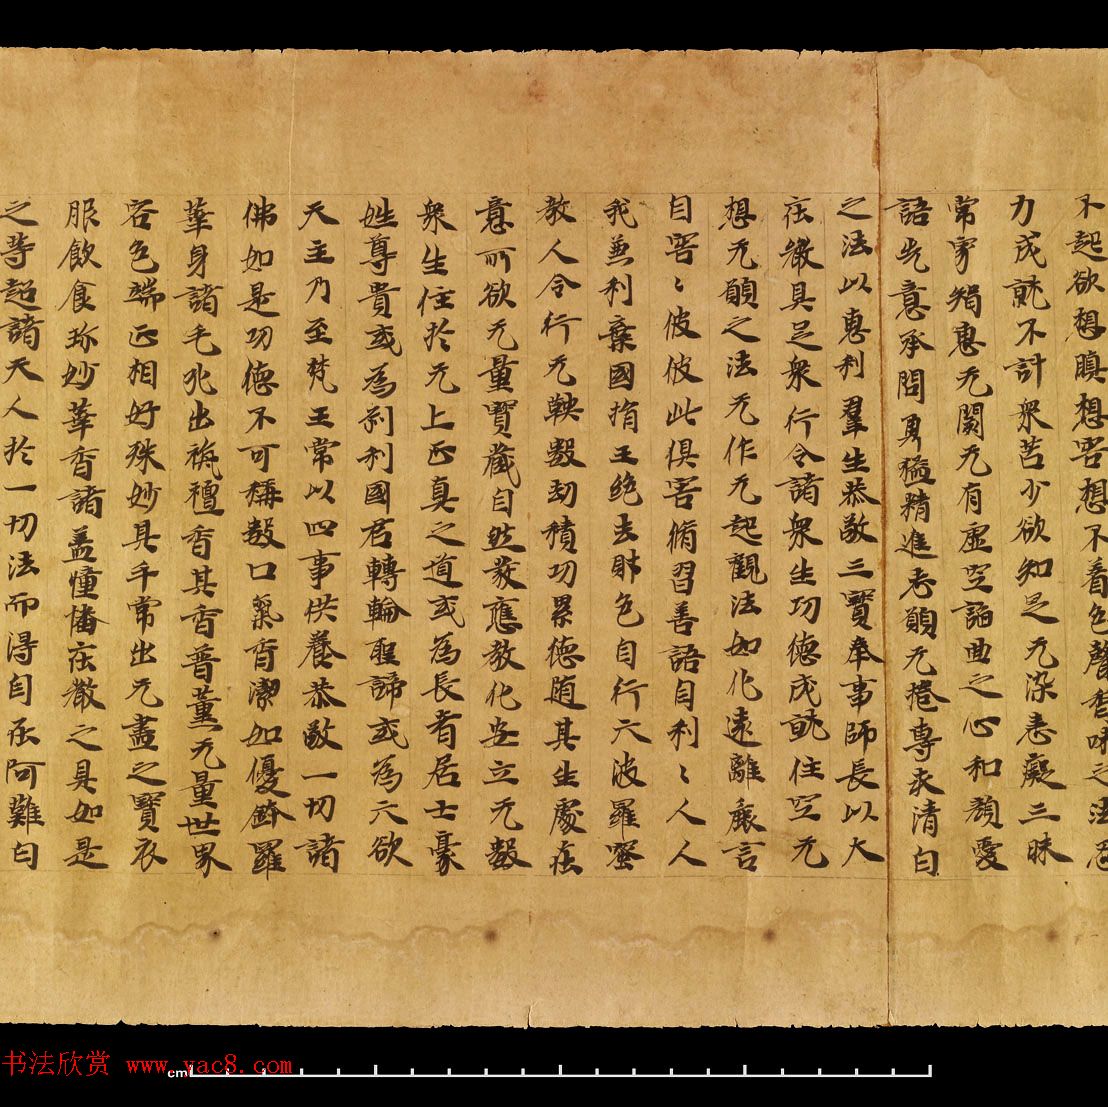 不起欲想瞋想害想不著色聲香味之法忍
力成就不計衆苦少欲知足无染恚癡三昧
常寂智惠无閡无有虛空諂曲之心和顏愛
語先意承問勇猛精進志願无惓專求清白
之法以惠利羣生恭敬三寶奉事師長以大
莊嚴具足衆行令諸衆生功德成就住空无
想无願之法无作无起觀法如化遠離麁言
自害〻彼彼此俱害脩習善語自利〻人人
我兼利棄國捐王絕去財色自行六波羅蜜
教人令行无鞅數劫積功累德随其生處在
意所欲无量寶藏自然發應教化安立无數
衆生住於无上正真之道或為長者居士豪
姓尊貴或為刹利國君轉輪聖諦或為六欲
天主乃至梵王常以四事供養恭敬一切諸
佛如是功德不可稱數口氣香潔如優鉢羅
華身諸毛孔出栴檀香其香普薰无量世界
容色端正相好殊妙其手常出无盡之寶衣
服飲食珎妙華香諸盖幢幡莊嚴之具如是
之等超諸天人於一切法而得自在阿難白
书法欣赏 www.yac8.com
cm